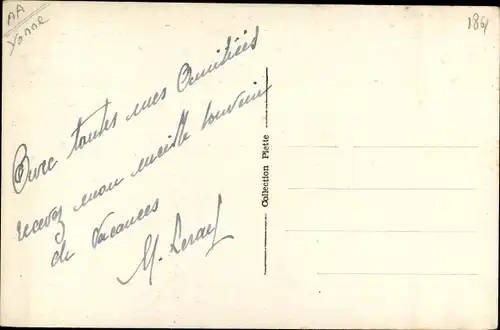 AA
Yonne
184
Avec toutes mes Amitiés
recevez mon meille souvenir
de Vacances
M. Leray
Collection Piette